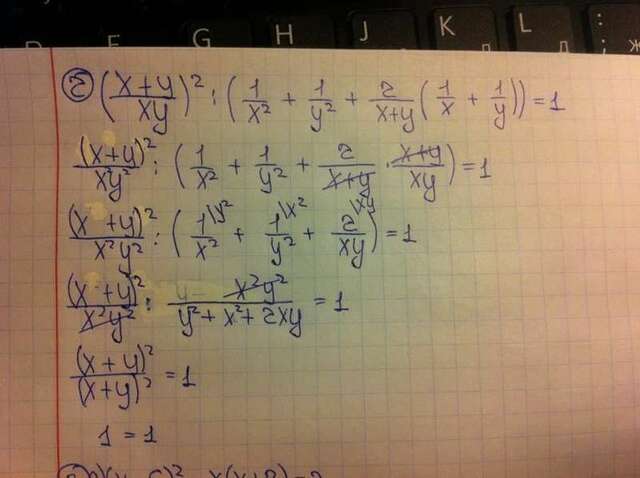 G H J K L
D F д ж
2) ((x+y)/(xy))² : (1/x² + 1/y² + 2/(x+y) (1/x + 1/y)) = 1
(x+y)²/(x²y²) : (1/x² + 1/y² + 2/(x+y) · (x+y)/(xy)) = 1
(x+y)²/(x²y²) : (1\y²/x² + 1\x²/y² + 2\xy/(xy)) = 1
(x+y)²/(x²y²) · x²y²/(y²+x²+2xy) = 1
(x+y)²/(x+y)² = 1
1 = 1